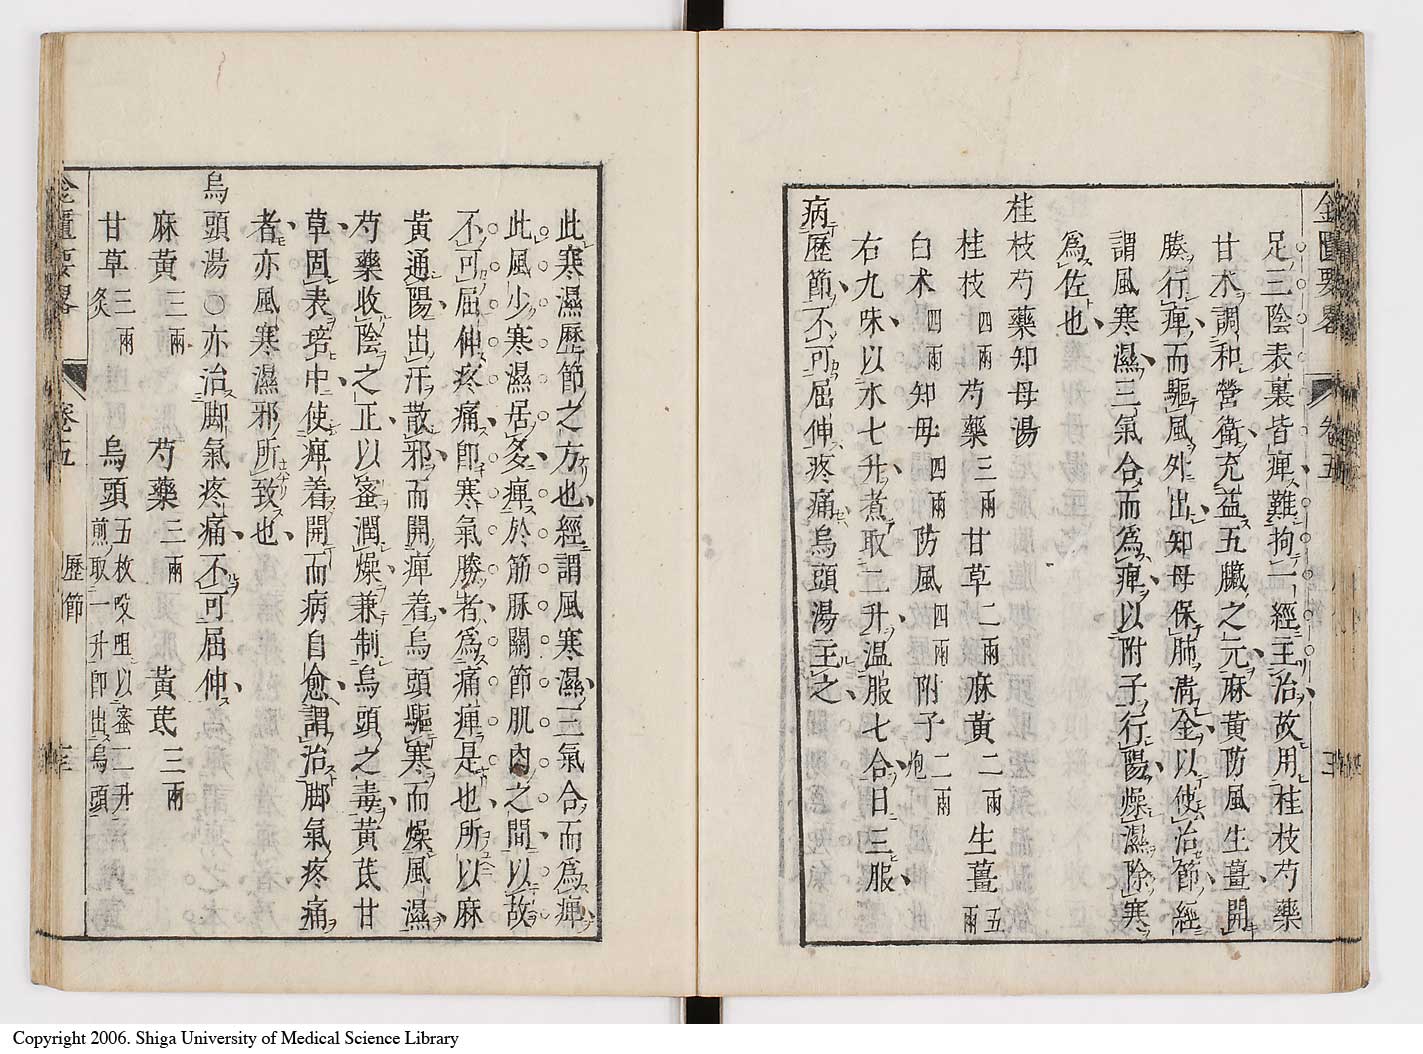 金匱要畧 卷五
足三陰表裏皆痺難拘一經主治故用桂枝芍藥
甘朮調和營衛充益五臟之元麻黃防風生薑開
腠行痺而驅風外出知母保肺淸金以使治節經
謂風寒濕三氣合而爲痺以附子行陽燥濕除寒
爲佐也
桂枝芍藥知母湯
桂枝四兩芍藥三兩甘草二兩麻黃二兩生薑五兩
白朮四兩知母四兩防風四兩附子二兩炮
右九味以水七升煮取二升温服七合日三服
病歷節不可屈伸疼痛烏頭湯主之
此寒濕歷節之方也經謂風寒濕三氣合而爲痺
此風少寒濕居多痺於筋脉關節肌肉之間以故
不可屈伸疼痛卽寒氣勝者爲痛痺是也所以麻
黃通陽出汗散邪而開痺着烏頭驅寒而燥風濕
芍藥收陰之正以蜜潤燥兼制烏頭之毒黃芪甘
草固表培中使痺着開而病自愈謂治脚氣疼痛
者亦風寒濕邪所致也
烏頭湯○亦治脚氣疼痛不可屈伸
麻黃三兩 芍藥三兩 黃芪三兩
甘草三兩炙 烏頭五枚㕮咀以蜜二升煎取一升卽出烏頭
金匱要畧 卷五 歷節